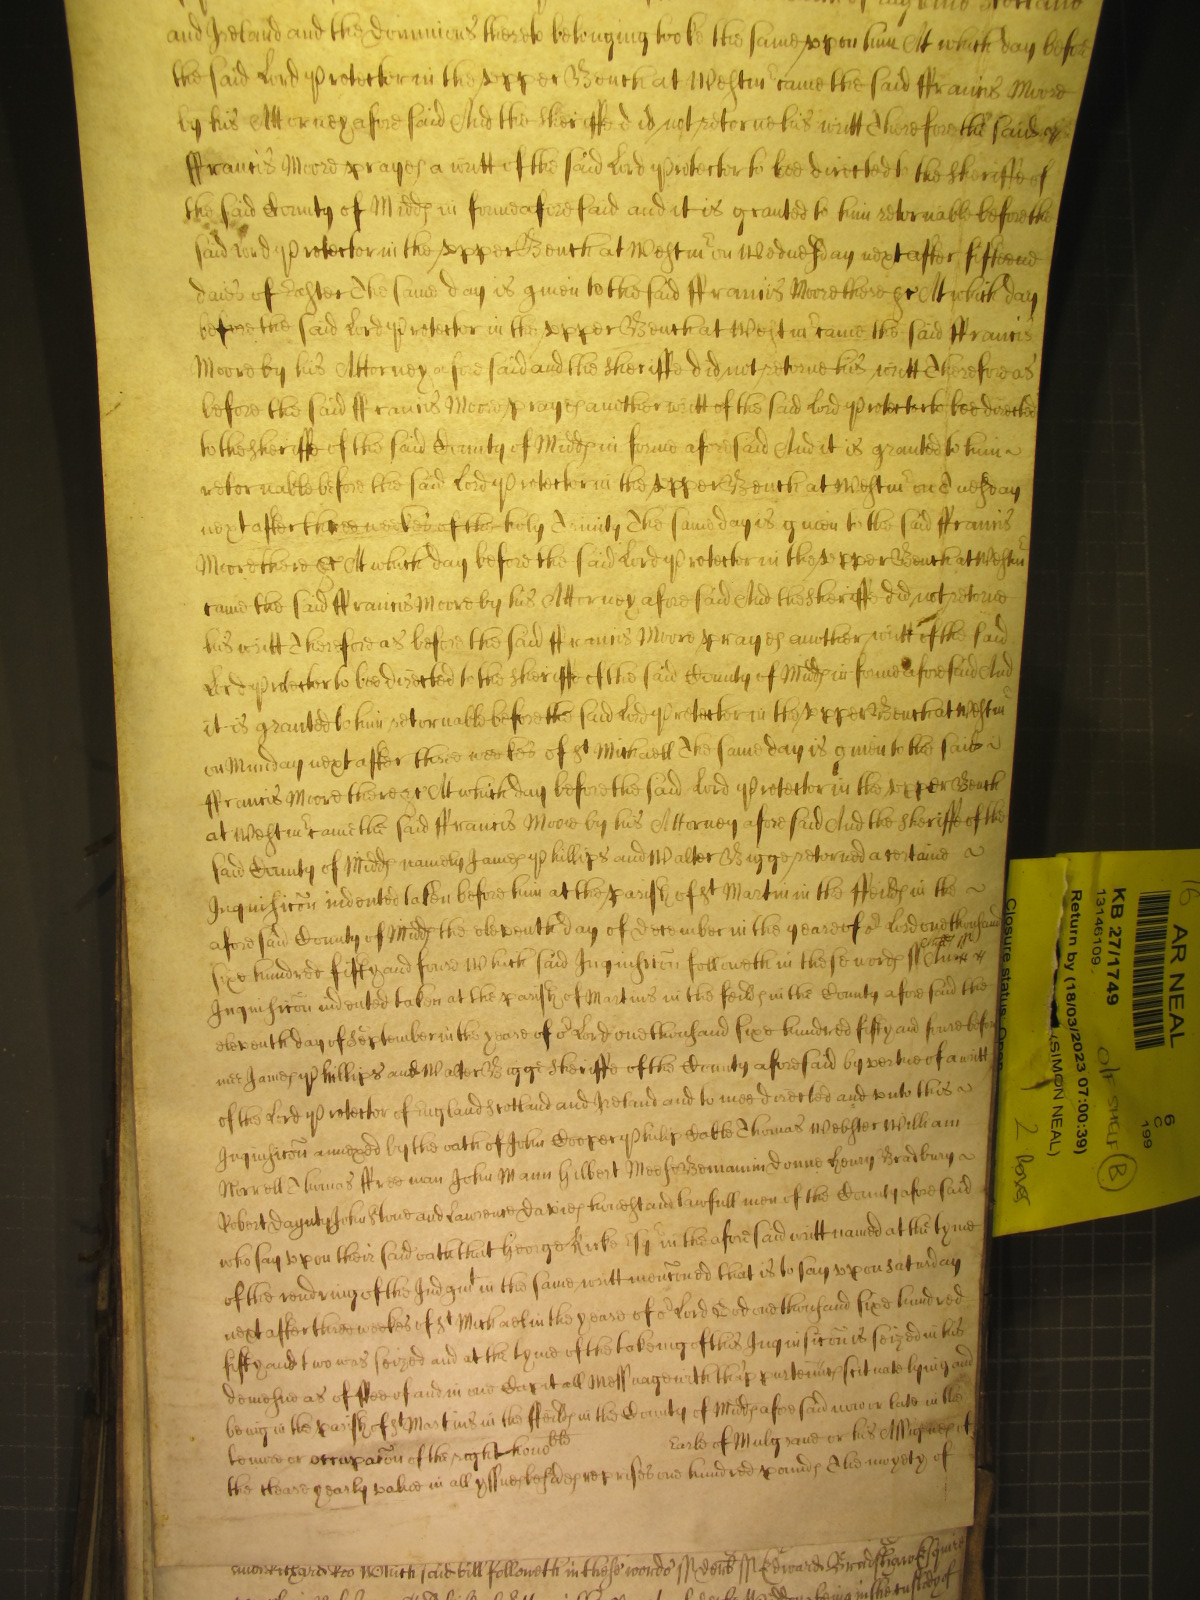 and Ireland and the Dominions thereto belonging tooke the same uppon him At which day before
the said Lord Protector in the upper Bench at Westmr came the said ffrancis Moore
by his Attorney aforesaid And the Sheriffe did not retorne his writt Therefore the said
ffrancis Moore prayes a writt of the said Lord Protector to bee directed to the Sheriffe of
the said County of Midds in forme aforesaid and it is granted to him retornable before the
said Lord Protector in the upper Bench at Westmr on Wednesday next after fifteene
daies of Easter The same day is given to the said ffrancis Moore there &c At which day
before the said Lord Protector in the upper Bench at Westmr came the said ffrancis
Moore by his Attorney aforesaid and the Sheriffe did not retorne his writt Therefore as
before the said ffrancis Moore prayes another writt of the said Lord Protector to bee directed
to the Sheriffe of the said County of Midds in forme aforesaid And it is granted to him
retornable before the said Lord Protector in the upper Bench at Westmr on Tuesday
next after three weekes of the holy Trinity The same day is given to the said ffrancis
Moore there &c At which day before the said Lord Protector in the upper Bench at Westmr
came the said ffrancis Moore by his Attorney aforesaid And the Sheriffe did not retorne
his writt Therefore as before the said ffrancis Moore prayes another writt of the said
Lord Protector to bee directed to the Sheriffe of the said County of Midds in forme aforesaid And
it is granted to him retornable before the said Lord Protector in the upper Bench at Westmr
on Munday next after three weekes of St Michaell The same day is given to the said
ffrancis Moore there &c At which day before the said Lord Protector in the upper Bench
at Westmr came the said ffrancis Moore by his Attorney aforesaid And the Sheriffe of the
said County of Midds namely James Phillips and Walter Bigge retorned a certaine
Inquisicon indented taken before him at the parish of St Martin in the ffeilds in the
aforesaid County of Midds the eleventh day of December in the yeare of or Lord one thousand
sixe hundred fifty and foure Which said Inquisicon followeth in these words ss
Inquisicon indented taken at the parish of Martins in the feilds in the County aforesaid the
eleventh day of September in the yeare of or Lord one thousand sixe hundred fifty and foure before
mee James Phillips and Walter Bigge Sheriffe of the County aforesaid by vertue of a writt
of the Lord Protector of England Scotland and Ireland and to mee directed and unto this
Inquisicon annexed by the oath of John Cooper Philip Cobb Thomas Webster William
Norrell Thomas ffreeman John Mann Gilbert Meese Beniamin Donne Henry Bradbury
Robert Daynty John Stone and Lawrence Davies honest and lawfull men of the County aforesaid
who say upon their said oath that George Kirke Esqr in the aforesaid writt named at the tyme
of the rendring of the Judgmt in the same writt menconed that is to say upon Saturday
next after three weekes of St Michael in the yeare of or Lord God one thousand sixe hundred
fifty and two was seized and at the tyme of the takeing of this Inquisicon is seized in his
demesne as of ffee of and in one Capitall Messuage with thappurtennces scituate lying and
being in the parish of St Martins in the ffeilds in the County of Midds aforesaid now or late in the
tenure or occupacon of the right honoble Earle of Mulgrave or his Assignes of
the cleare yearly value in all yssues besides reprises one hundred pounds The moyety of
which said bill followeth in these words ss
AR NEAL
6
C
199
KB 27/1749
13146109
Return by (18/03/2023 07:00:39)
(SIMON NEAL)
Closure status: Open
O/S Shelf
B